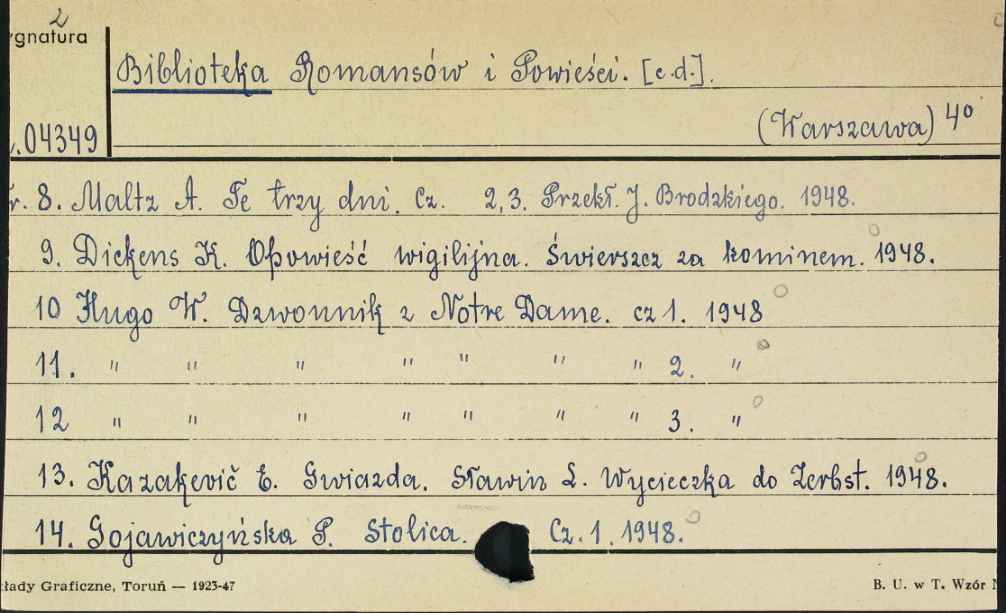 2
ygnatura
Biblioteka Romansów i Powieści. [c.d.].
(Warszawa) 4⁰
04349
r. 8. Maltz A. Te trzy dni. Cz. 2,3. Przekł. J. Brodzkiego. 1948.
9. Dickens K. Opowieść wigilijna. Świerszcz za kominem. 1948.
10 Hugo W. Dzwonnik z Notre Dame. cz 1. 1948
11. " " " " " " " 2. "
12 " " " " " " " 3. "
13. Kazakevič E. Gwiazda. Sławin L. Wycieczka do Zerbst. 1948.
14. Gojawiczyńska P. Stolica. Cz. 1. 1948.
kłady Graficzne, Toruń — 1923-47
B. U. w T. Wzór N